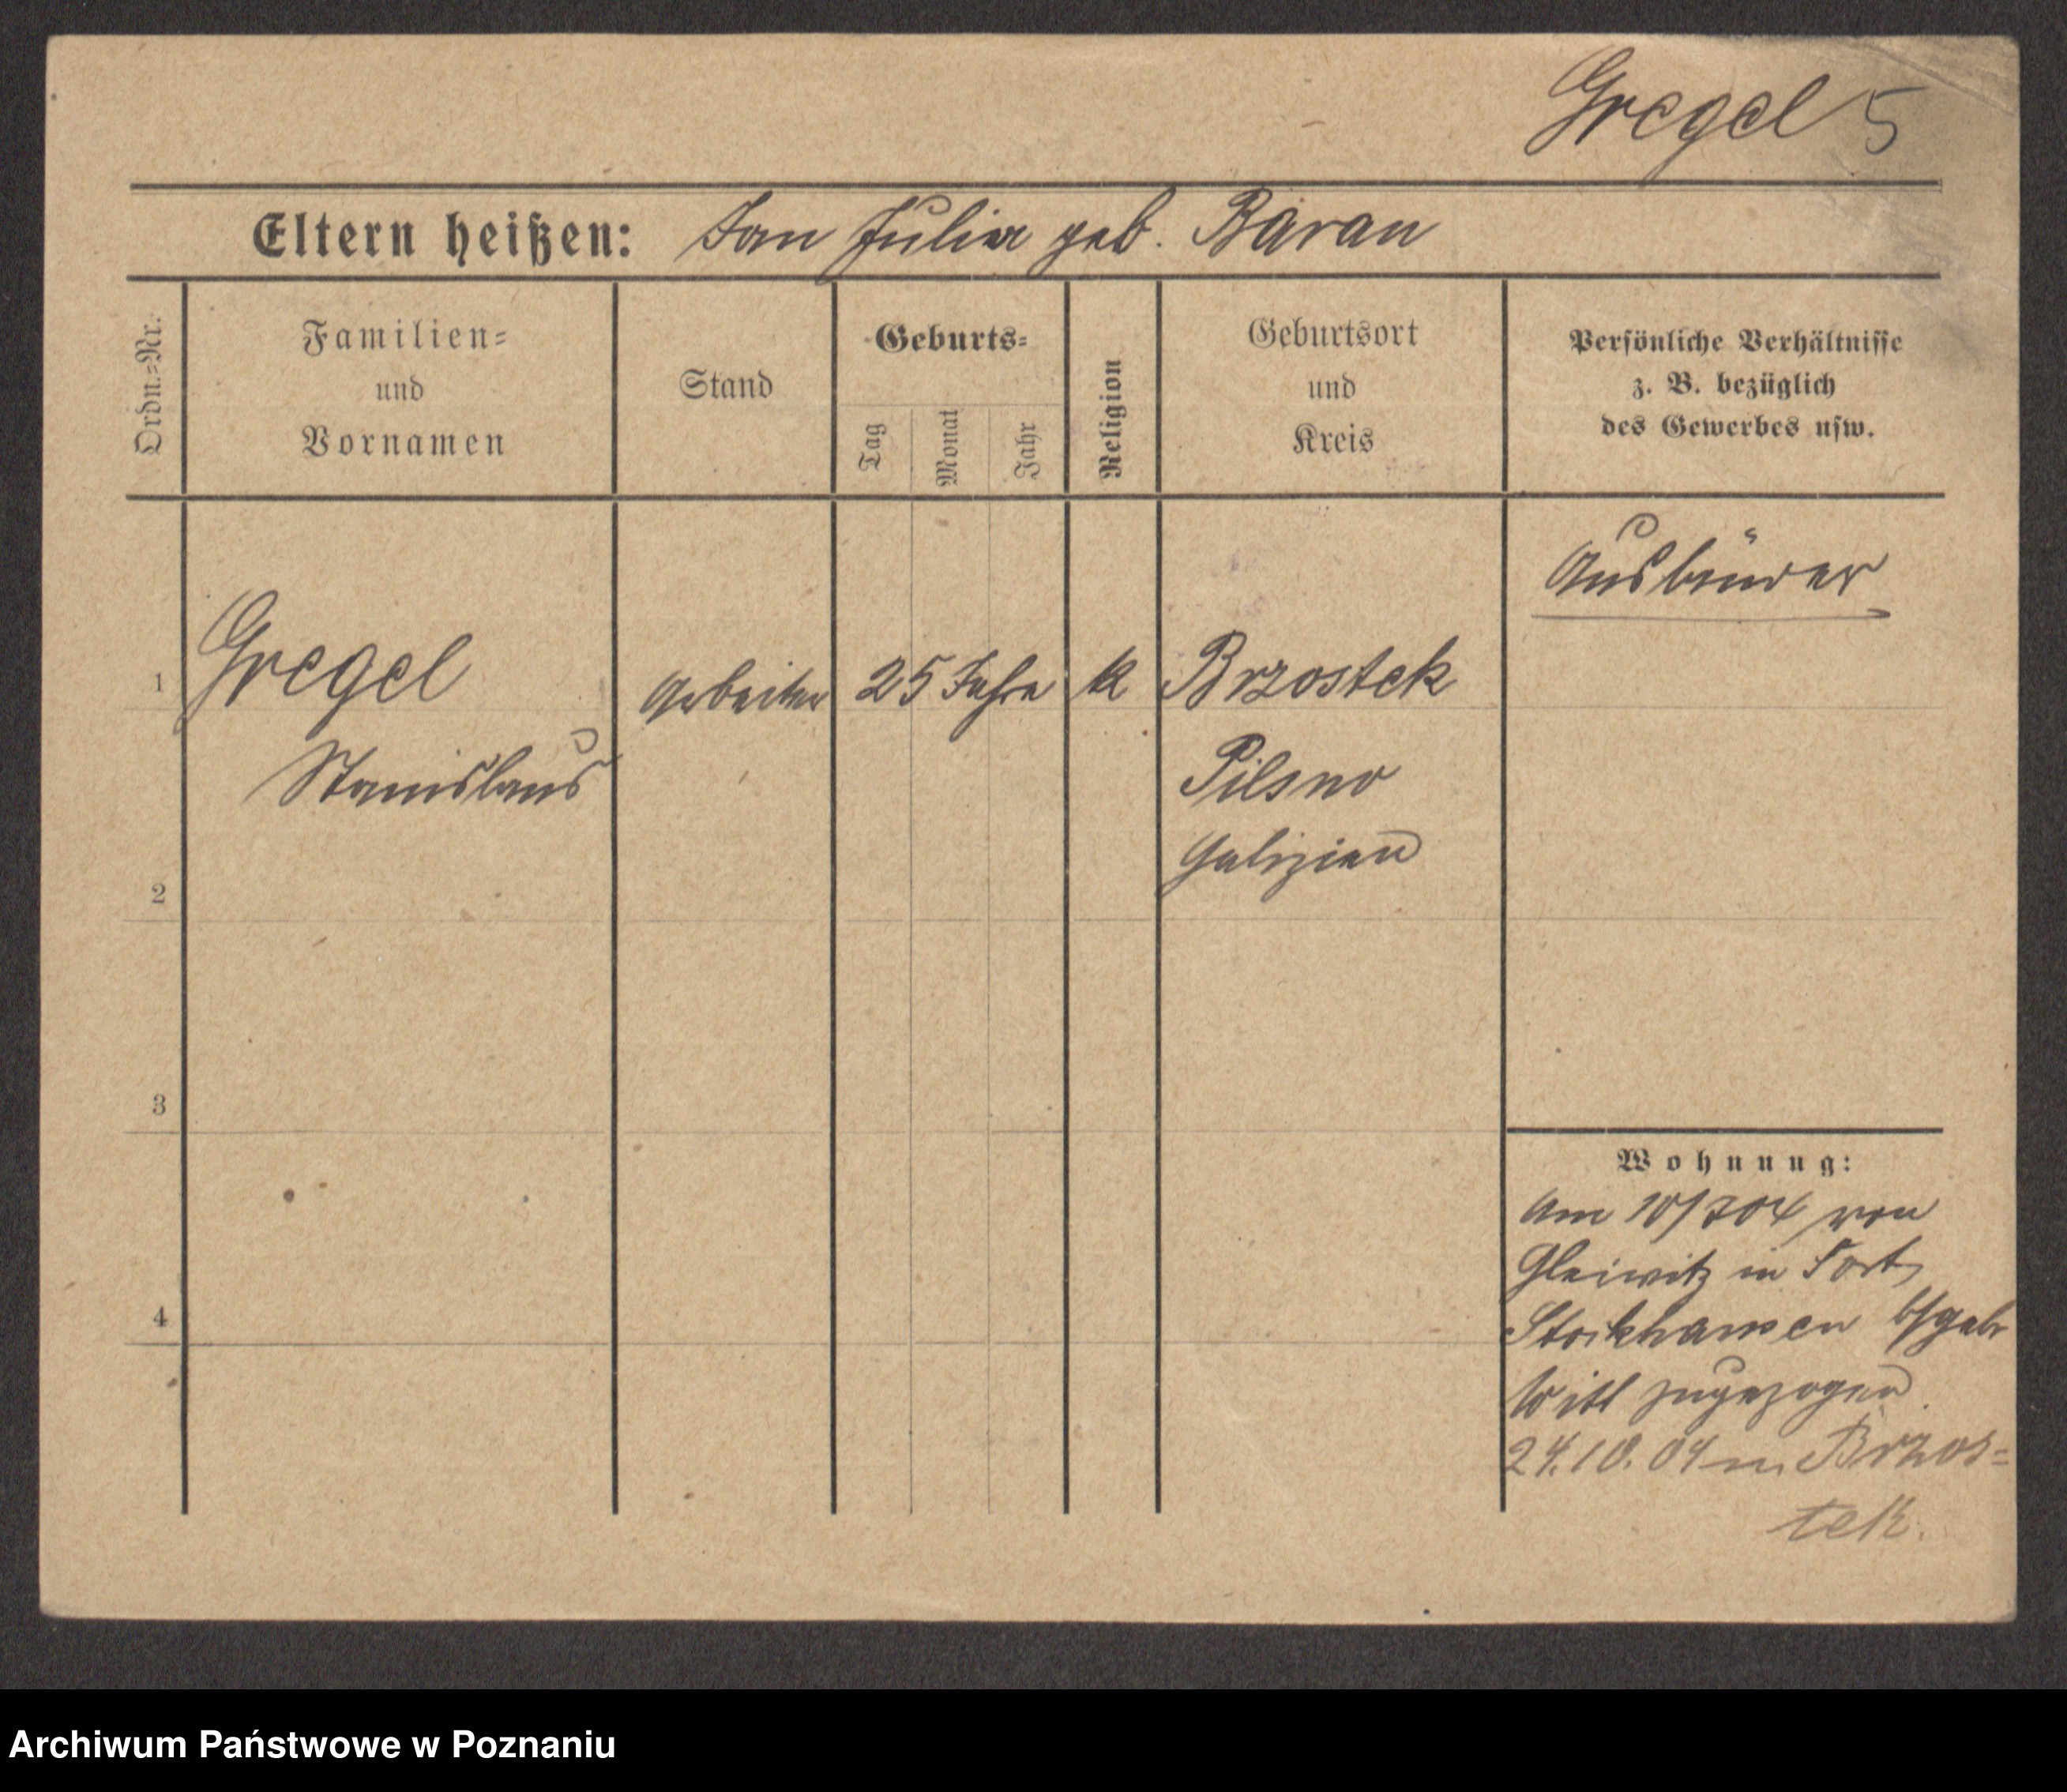 Gregel 5
Eltern heißen: Jan Julia geb. Baran
Ordn.-Nr.
Familien-
und
Vornamen
Stand
Geburts-
Tag
Monat
Jahr
Religion
Geburtsort
und
Kreis
Persönliche Verhältnisse
z. B. bezüglich
des Gewerbes usw.
1
Gregel
Stanislaus
Arbeiter
25 Jahre
k
Brzostek
Pilsno
Galizien
2
3
4
Wohnung:
Am 10/704 von
Gleiwitz in Fort
Stockhausen
zugezogen
24.10.04 n. Brzos-
tek.
Archiwum Państwowe w Poznaniu